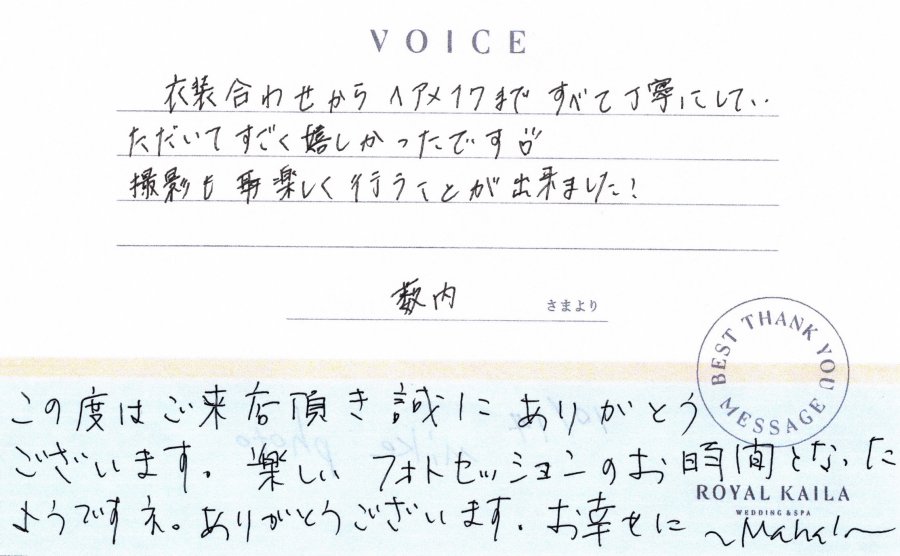 VOICE
衣装合わせからヘアメイクまですべて丁寧にしてい
ただいてすごく嬉しかったです
撮影も楽しく行うことが出来ました!
薮内 さまより
BEST THANK YOU MESSAGE
この度はご来店頂き誠にありがとう
ございます。楽しいフォトセッションのお時間となった
ようですネ。ありがとうございます。お幸せに ~Mahal~
ROYAL KAILA
WEDDING & SPA